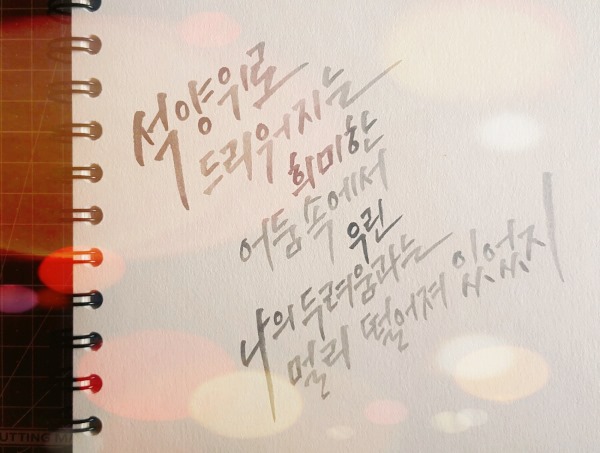 석양위로
드리워지는
희미한
어둠 속에서
우린
나의 두려움과는
멀리 떨어져 있었지
UTTING MA